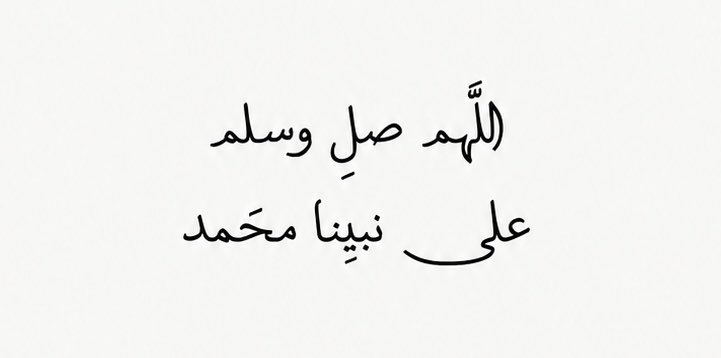 اللَّهم صلِ وسلم
على نبيِنا محَمد